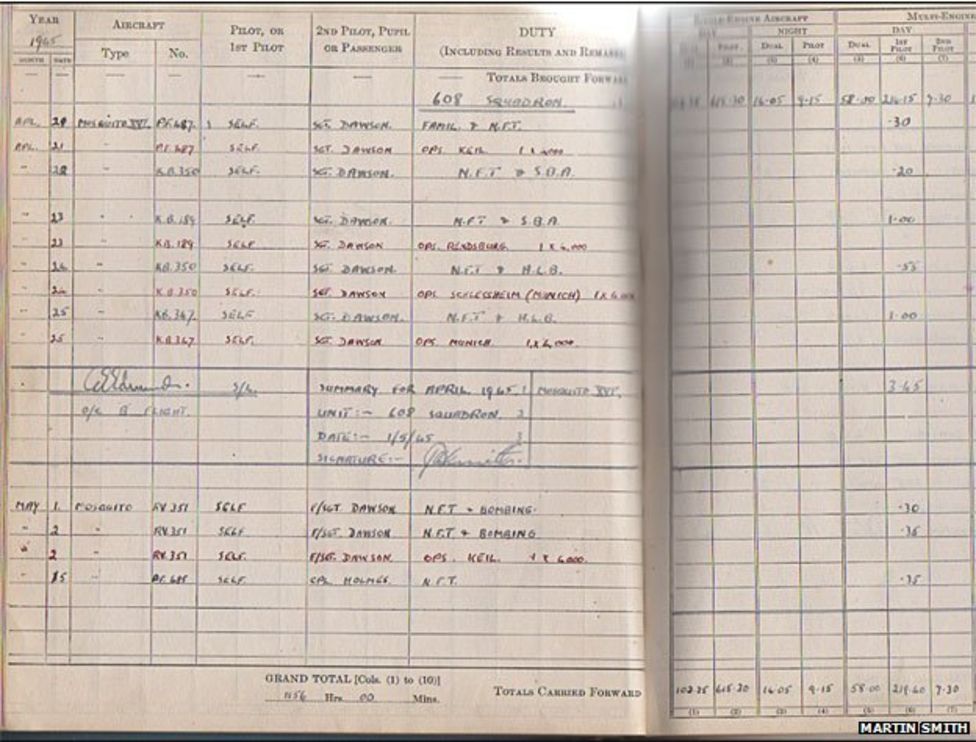 YEAR AIRCRAFT PILOT, OR 1ST PILOT 2ND PILOT, PUPIL OR PASSENGER DUTY (INCLUDING RESULTS AND REMARKS ENGINE AIRCRAFT MULTI-ENGINE
1945 Type No. NIGHT DAY
MONTH DATE PILOT DUAL PILOT DUAL 1ST PILOT 2ND PILOT
(2) (3) (4) (5) (6) (7)
— — — — — — — TOTALS BROUGHT FORWAR
608 SQUADRON. 615.30 16.05 9.15 58.00 216.15 7.30
APL. 20 MOSQUITO XVI. PF.487 SELF. SGT. DAWSON. FAMIL. & N.F.T. .30
APL. 21 " PF.487 SELF. SGT. DAWSON OPS. KEIL 1 X 4,000
" " K.B.350 SELF. SGT. DAWSON. N.F.T & S.B.A. .20
" 23 " K.B.189 SELF. SGT. DAWSON. N.F.T & S.B.A. 1.00
" 23 " KB.189 SELF SGT. DAWSON OPS. RENDSBURG 1 X 4,000
" 24 " KB.350 SELF. SGT. DAWSON. N.F.T & H.L.B. .55
" 24 " K.B.350 SELF. SGT. DAWSON OPS SCHLESSHEIM (MUNICH) 1 X 4,000
" 25 " KB.347 SELF SGT. DAWSON. N.F.T & H.L.B. 1.00
" 25 " KB.347 SELF. SGT. DAWSON OPS. MUNICH 1 X 4,000.
S/L. SUMMARY FOR APRIL 1945. 1 MOSQUITO XVI. 3.45
O/C B FLIGHT. UNIT:- 608 SQUADRON. 2
DATE:- 1/5/45 3
SIGNATURE:-
MAY 1. MOSQUITO RV 351 SELF F/SGT DAWSON N.F.T & BOMBING. .30
" 2 " RV.351 SELF F/SGT. DAWSON N.F.T & BOMBING .35
" 2 " RV.351 SELF. F/SGT. DAWSON OPS. KEIL. 1 X 4000.
" 15 " SELF. CPL HOLMES. N.F.T. .35
GRAND TOTAL [Cols. (1) to (10)]
1156 Hrs. 00 Mins. TOTALS CARRIED FORWARD 102.25 615.30 16.05 9.15 58.00 7.30
(1) (2) (3) (4) (5) (6) (7)
MARTIN SMITH